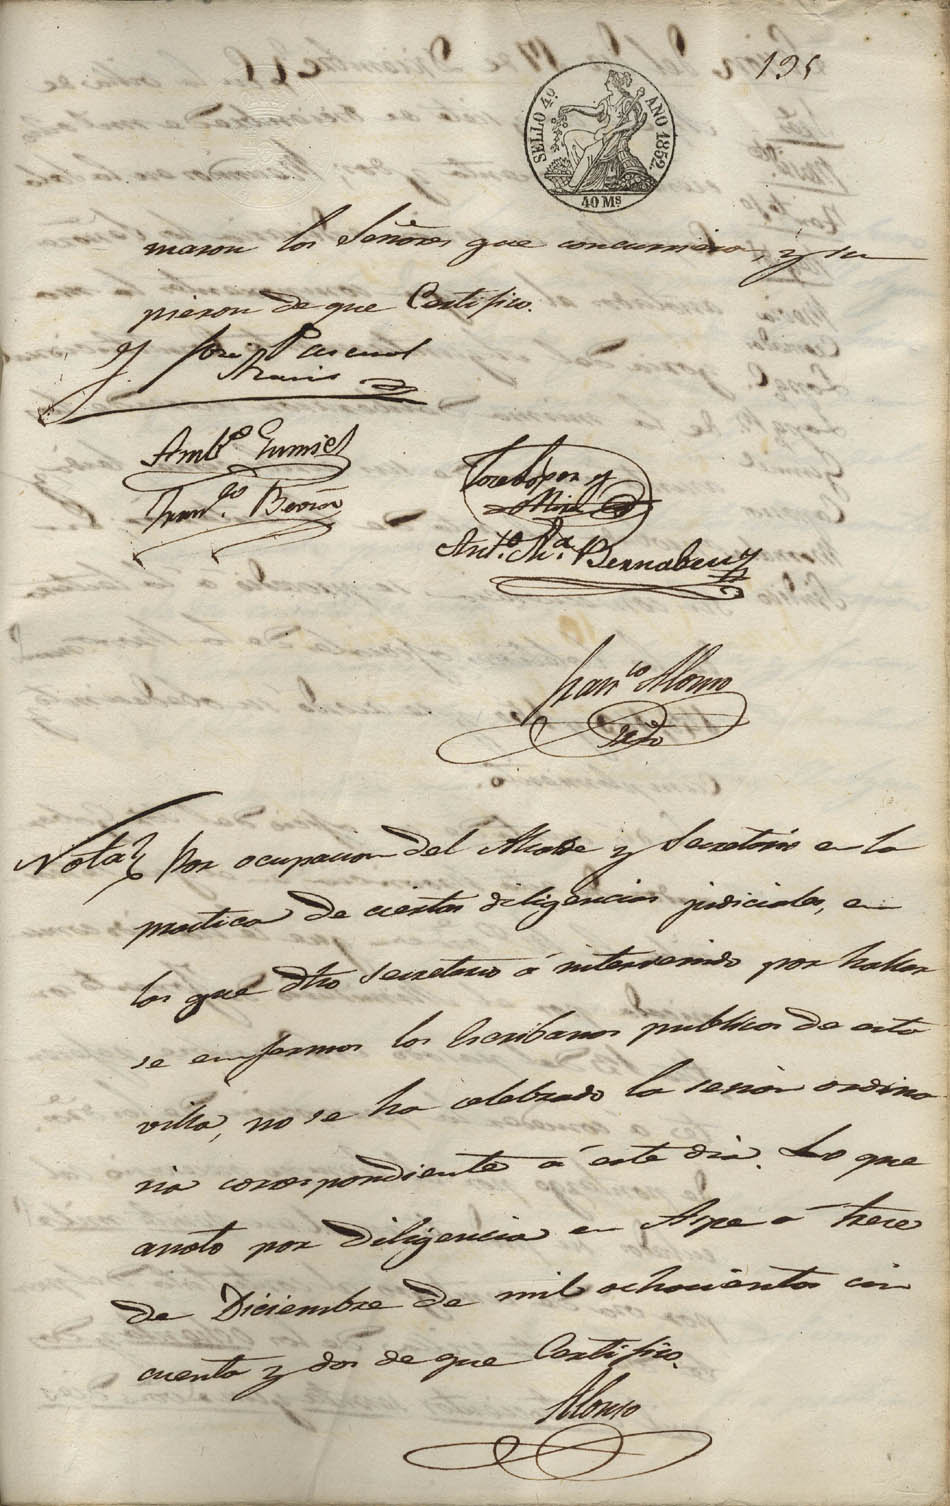 195
SELLO 4º AÑO 1852.
40 Ms
maron los Señores que concurrieron, y su
pieron de que Certifico.
José Pascual
Ambº Gumiel
Franco Berná
José López y
Antº Mª Bernabeu
Franco Alonso
Srio
Nota
Por ocupacion del Alcalde y Secretario en la
practica de ciertas diligencias judiciales, en
las que dho Secretario á intervenido por hallar
se enfermos los Escribanos publicos de esta
villa, no se ha celebrado la sesion ordina
ria correspondiente á este dia. Lo que
anoto por diligencia en Aspe á trece
de Diciembre de mil ochocientos cin
cuenta y dos de que Certifico.
Alonso